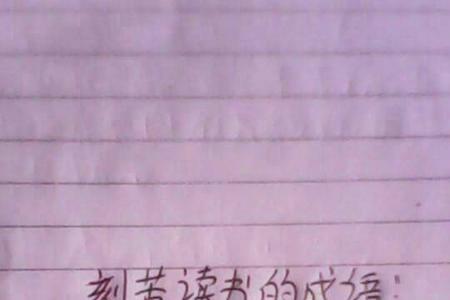 刻苦读书的成语: